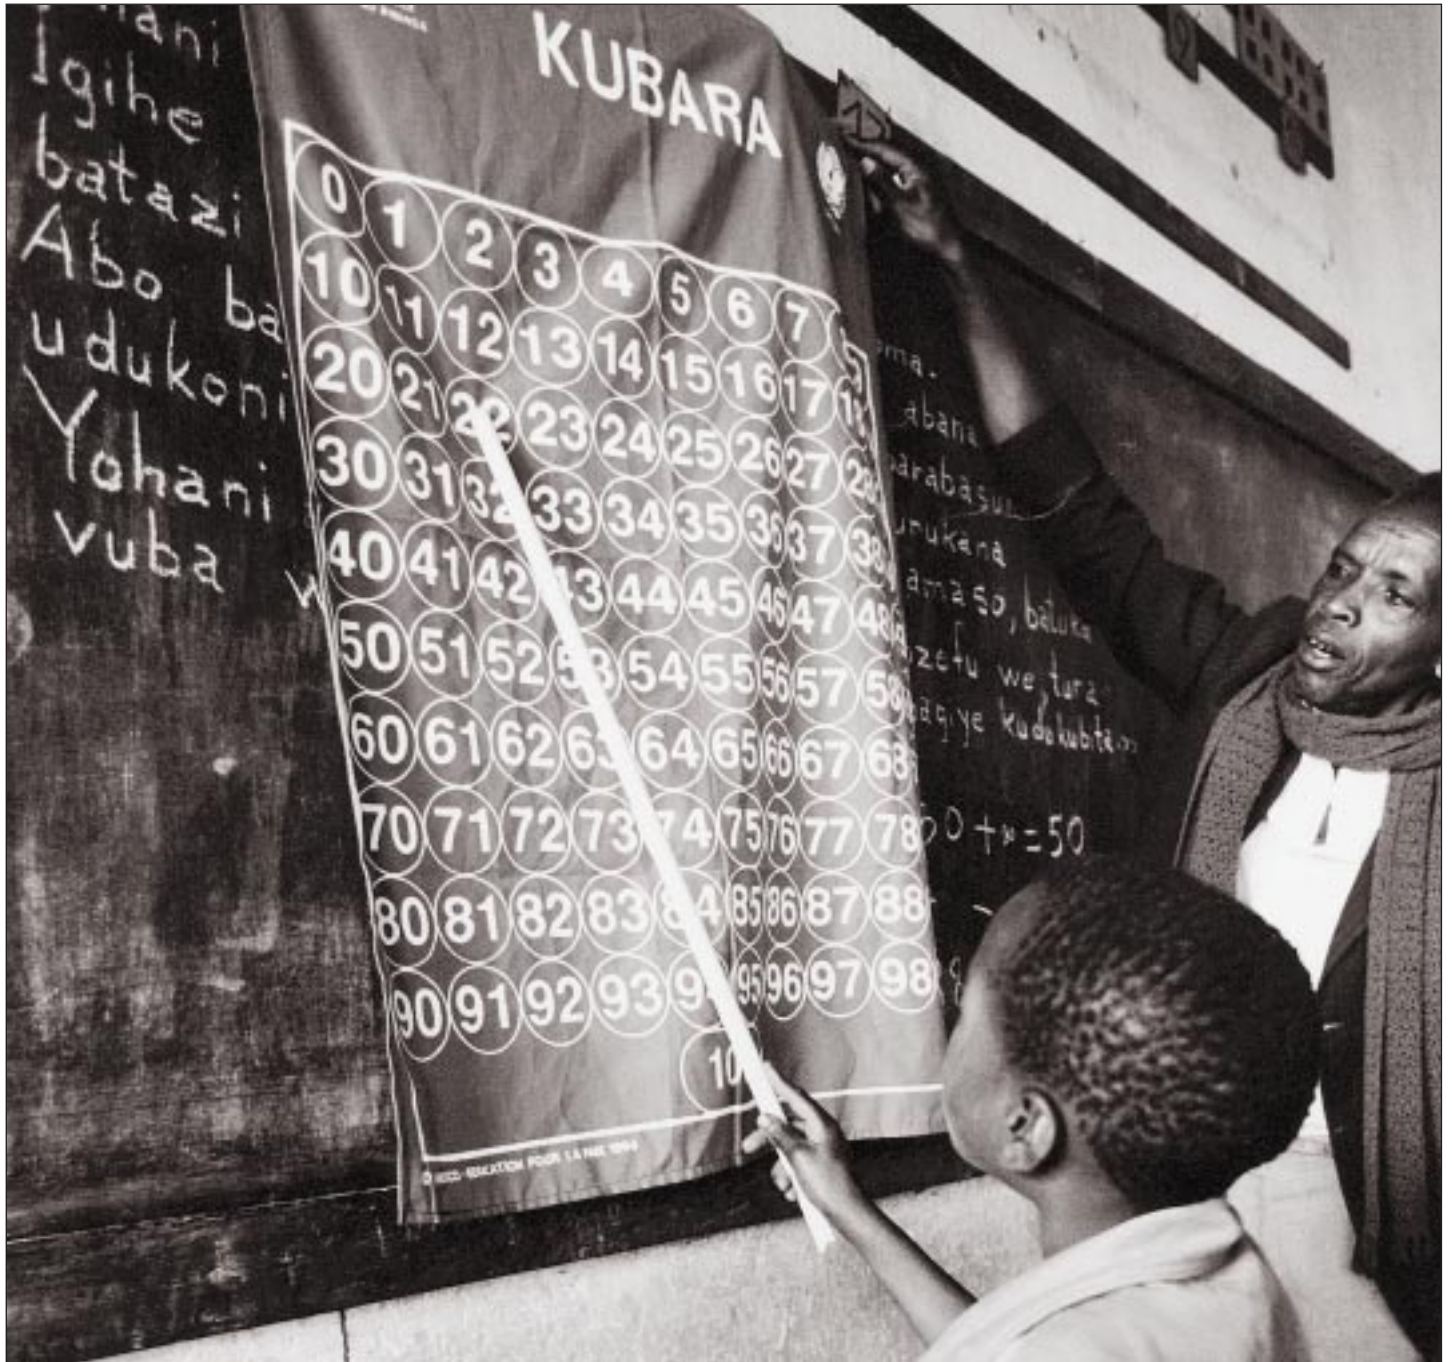 Igihe
batazi
Abo ba
udukoni
Yohani
vuba
KUBARA
0 1 2 3 4 5 6 7
10 11 12 13 14 15 16 17
20 21 22 23 24 25 26 27 28
30 31 32 33 34 35 36 37 38
40 41 42 43 44 45 46 47 48
50 51 52 53 54 55 56 57 58
60 61 62 63 64 65 66 67 68
70 71 72 73 74 75 76 77 78
80 81 82 83 84 85 86 87 88
90 91 92 93 95 96 97 98
10
POUR LA PAIX 1994
abana
amaso, batuka
we, tura
kudukubita
=50